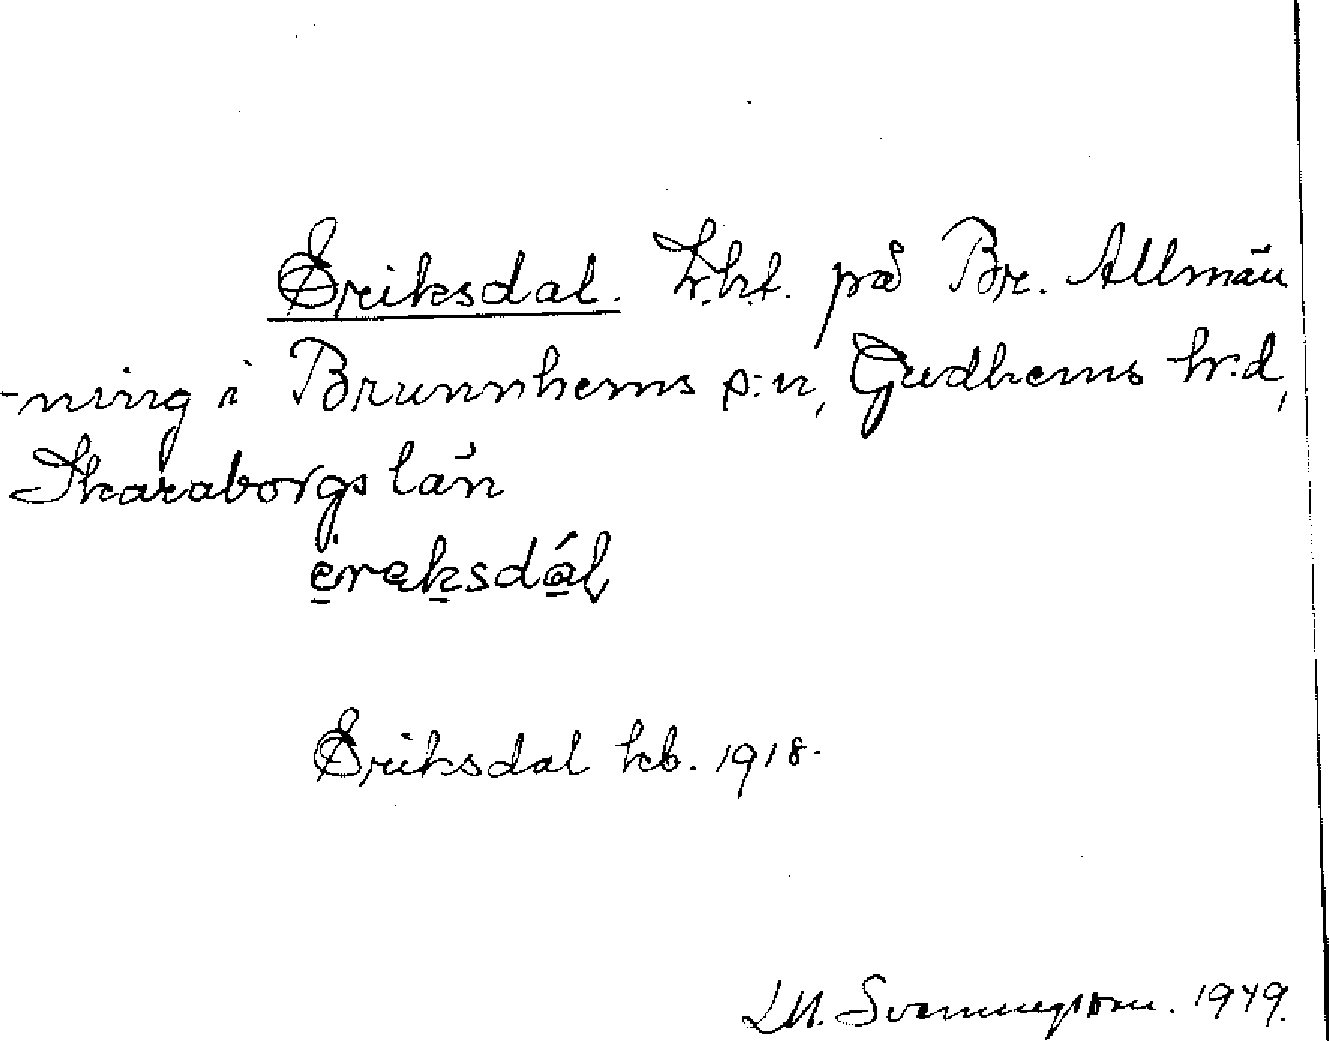 Eriksdal. Lht. på Br. Allmän
-ning i Brunnhems s:n, Gudhems h:d,
Skaraborgs län
ereksdál
Eriksdal kb. 1918.
Svenningsson. 1949.